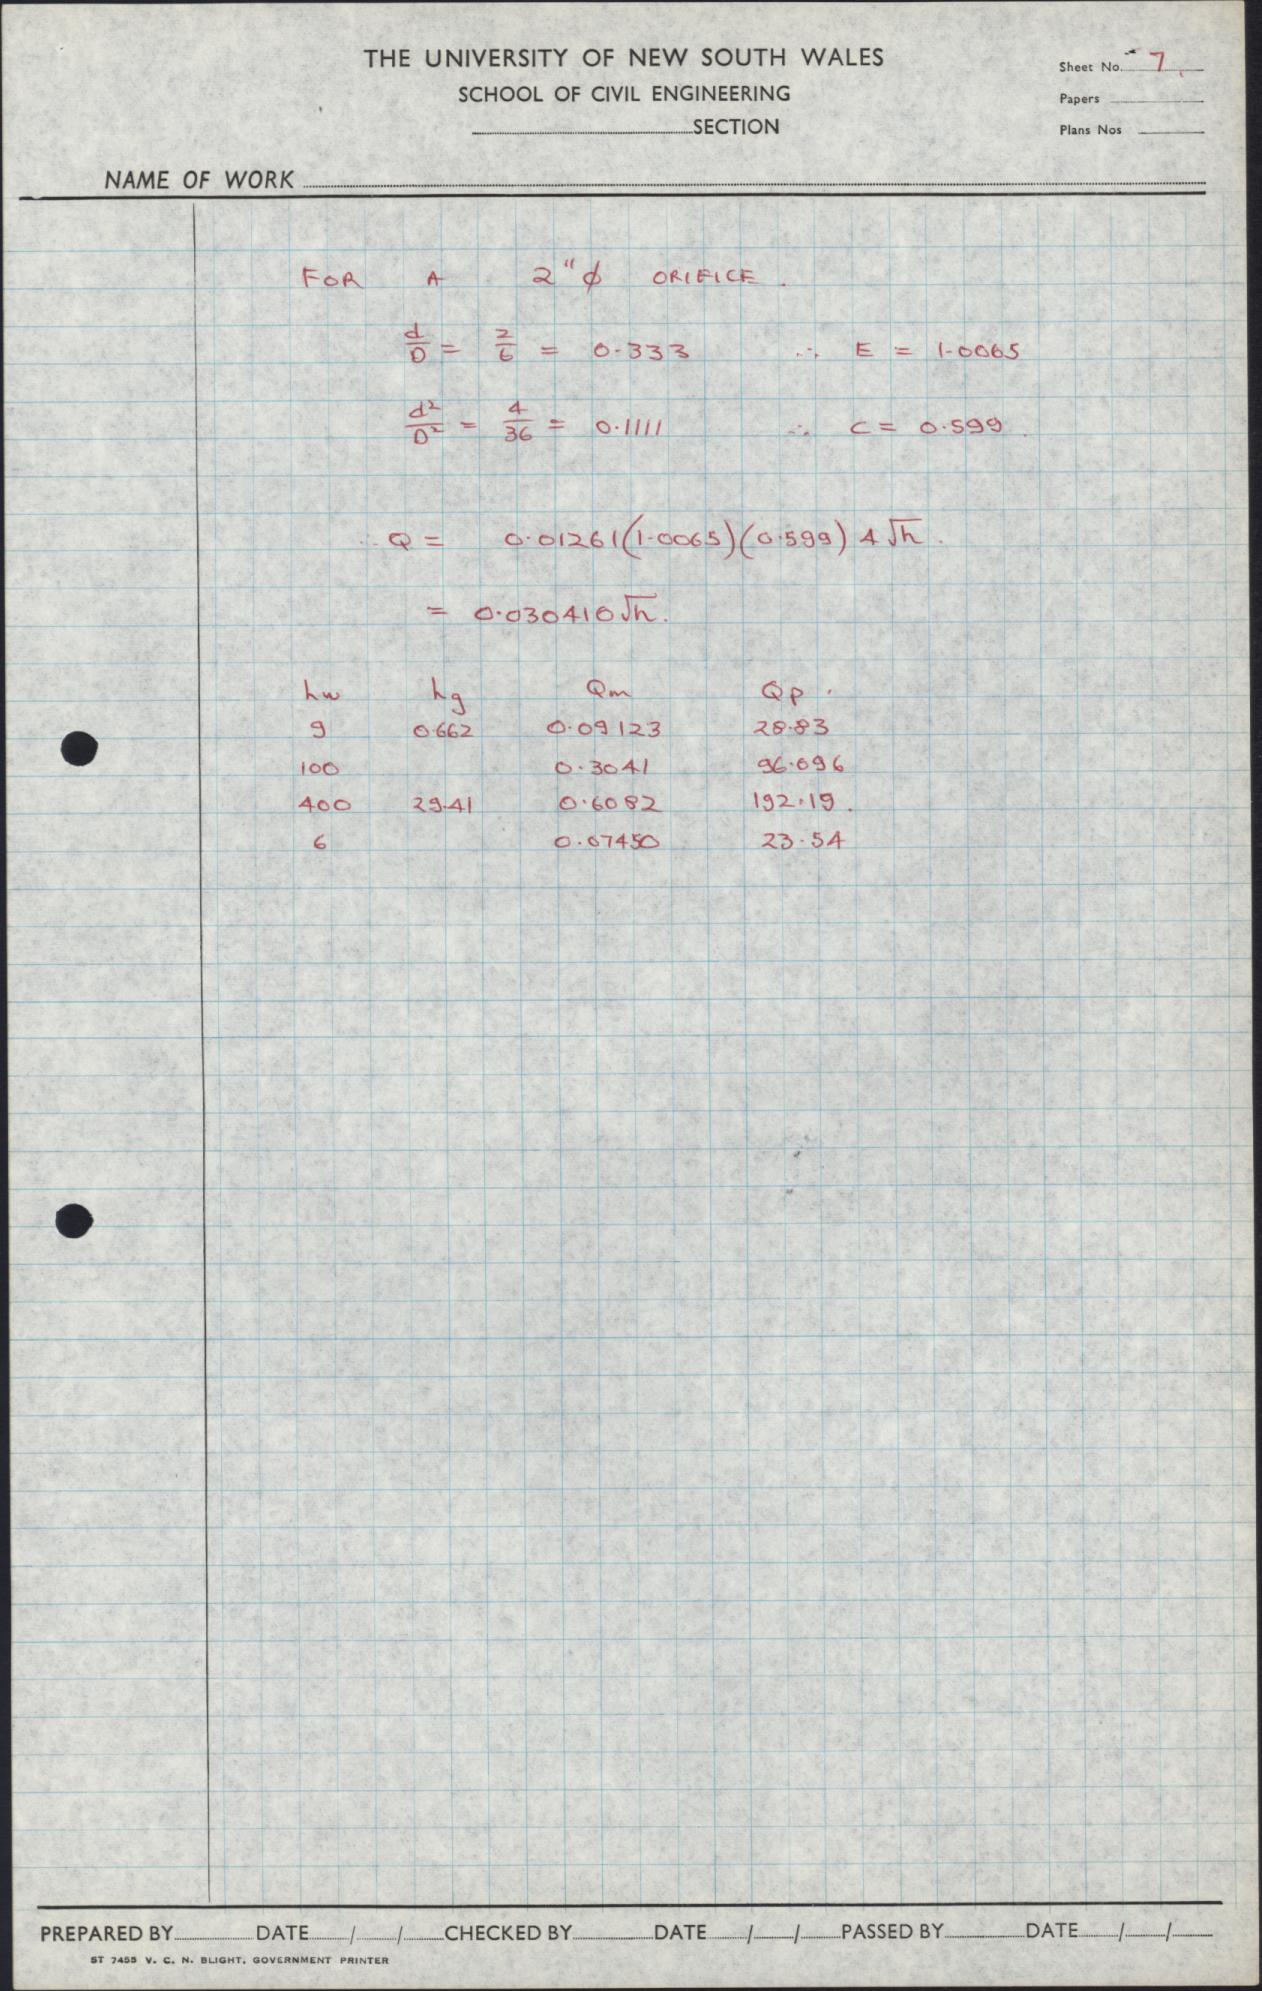 THE UNIVERSITY OF NEW SOUTH WALES
Sheet No. 7.
SCHOOL OF CIVIL ENGINEERING
Papers
SECTION
Plans Nos
NAME OF WORK
FOR A 2"ϕ ORIFICE.
d/D = 2/6 = 0.333 ∴ E = 1.0065
d²/D² = 4/36 = 0.1111 ∴ C = 0.599
∴ Q = 0.01261(1.0065)(0.599) 4√h.
= 0.030410√h.
hw hg Qm Qp
9 0.662 0.09123 28.83
100 0.3041 96.096
400 29.41 0.6082 192.19.
6 0.07450 23.54
PREPARED BY DATE / / CHECKED BY DATE / / PASSED BY DATE / /
ST 7455 V. C. N. BLIGHT, GOVERNMENT PRINTER